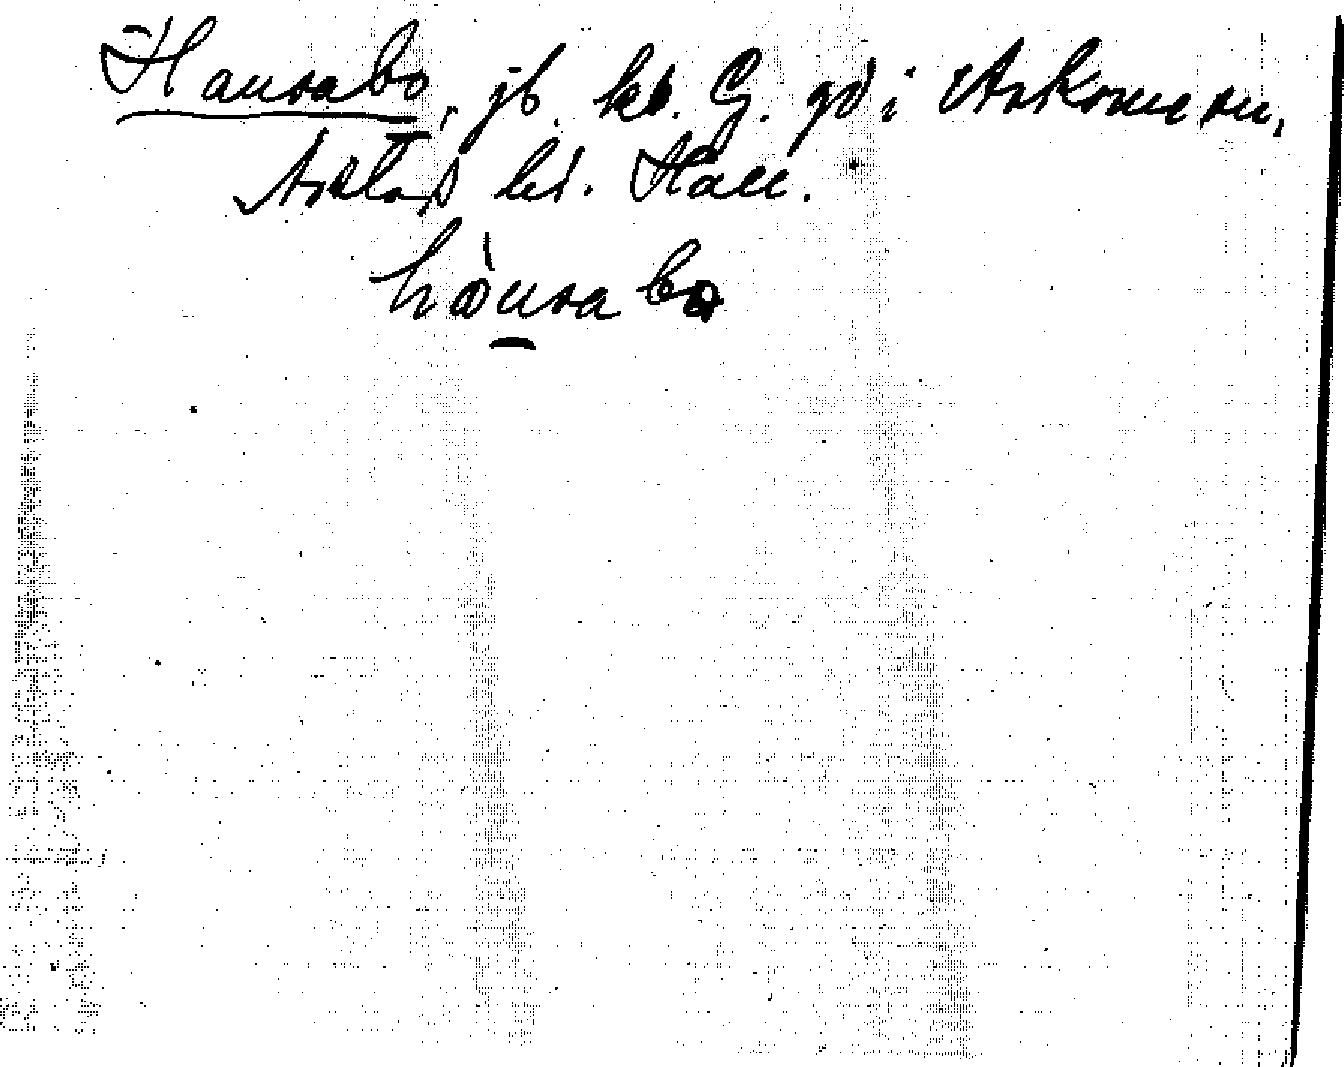 Hansabo, jb. kb. G. gd i Askome sn,
Årstads hd. Hall.
hànsabo